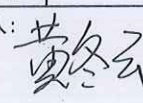 黄冬云